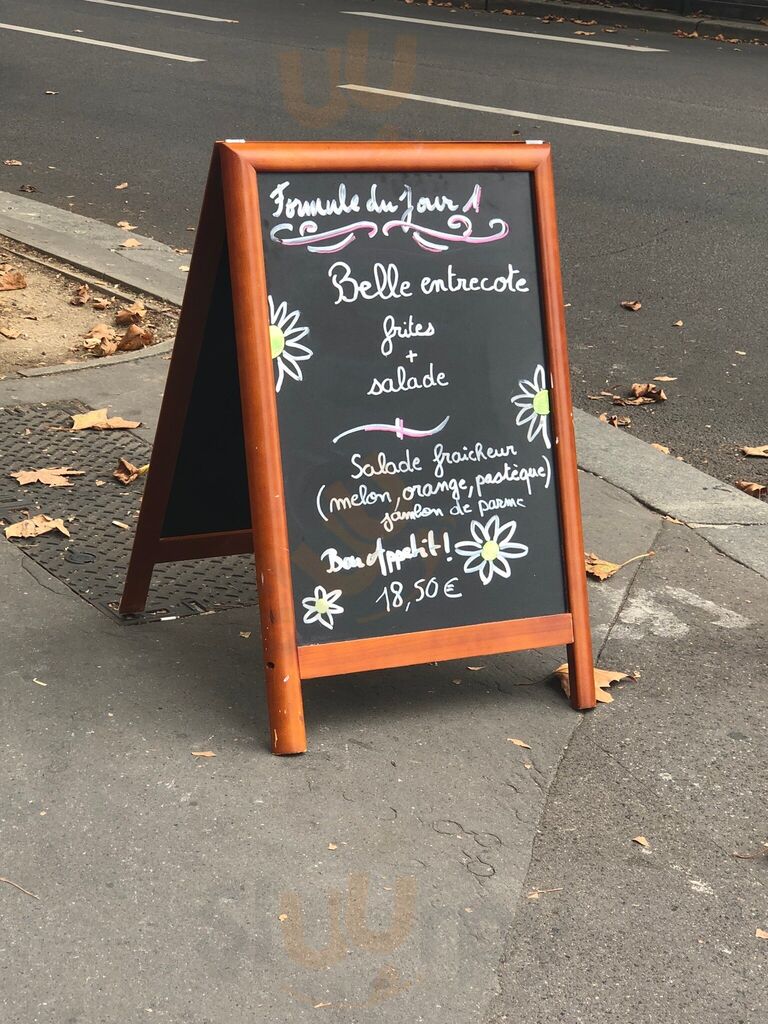 Formule du Jour 1
Belle entrecote
frites
+
salade
Salade fraicheur
(melon, orange, pastèque)
jambon de parme
Bon Appetit!
18,50 €